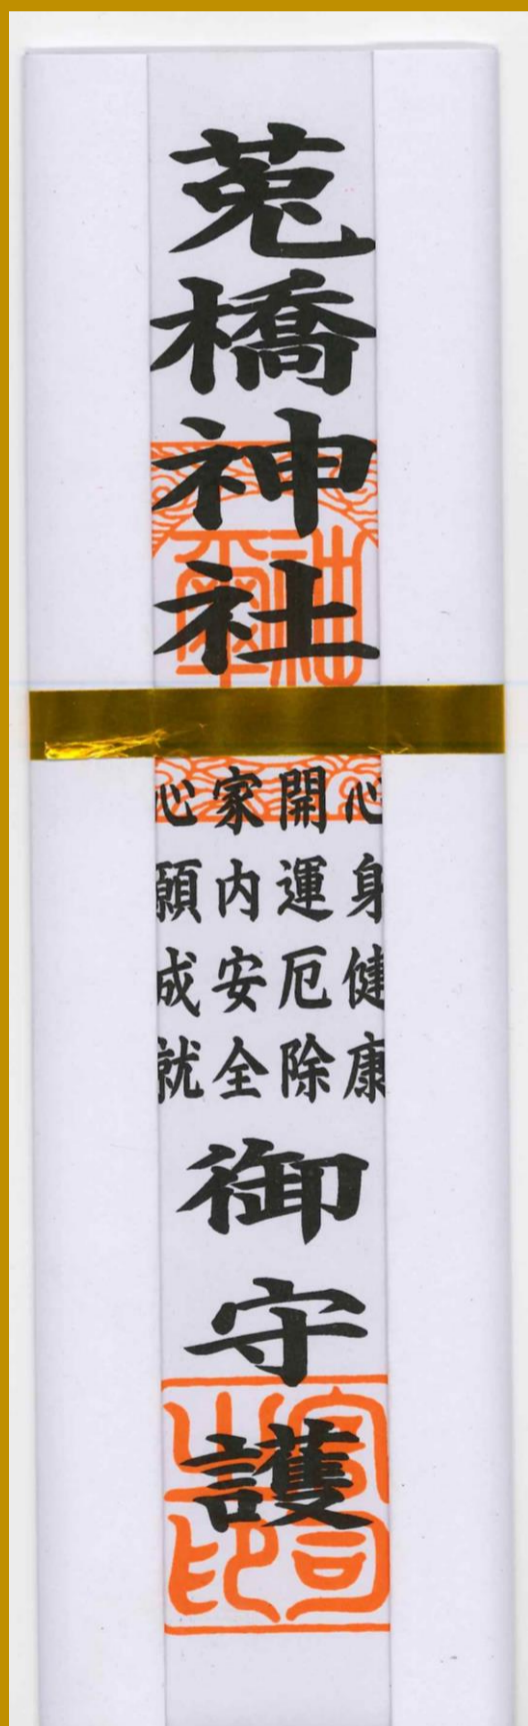 莵橋神社
心身健康
開運厄除
家内安全
心願成就
御守護
宮司之印